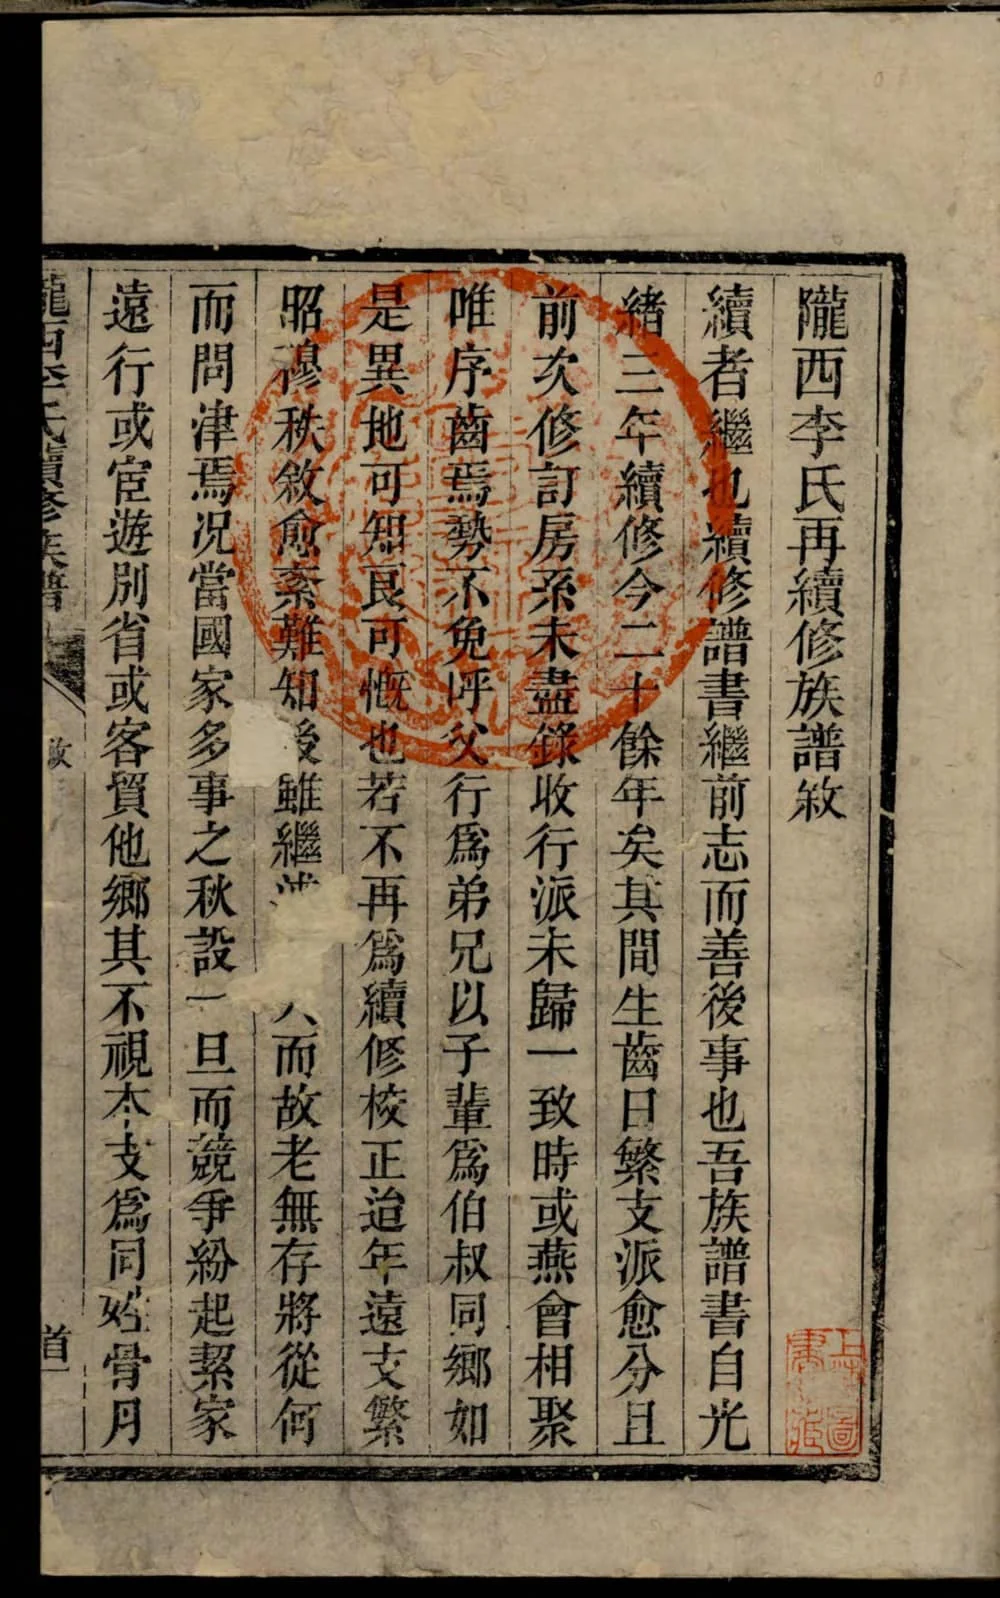 隴西李氏再續修族譜敘
續者繼也續修譜書繼前志而善後事也吾族譜書自光
緒三年續修今二十餘年矣其間生齒日繁支派愈分且
前次修訂房系未盡錄收行派未歸一致時或燕會相聚
唯序齒焉勢不免呼父行為弟兄以子輩為伯叔同鄉如
是異地可知良可慨也若不再為續修校正迨年遠支繁
昭穆秩敘愈紊難知後雖繼 人而故老無存將從何
而問津焉況當國家多事之秋設一旦而競爭紛起絜家
遠行或宦遊別省或客貿他鄉其不視本支為同姓骨月
隴西李氏續修族譜 敘 首一